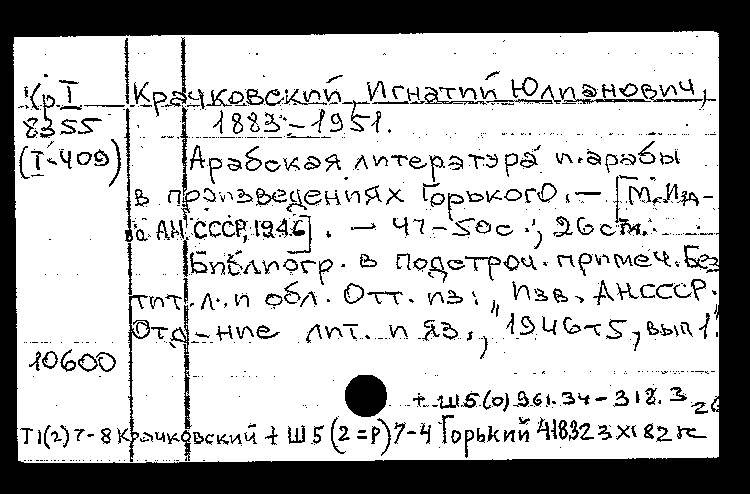 КрI Крачковский, Игнатий Юлианович,
8355 1883-1951.
(I-409) Арабская литература и арабы
в произведениях Горького. — [М., Изд-
о АН СССР, 1946]. — 47-50с., 26 см.
Библиогр. в подстроч. примеч. Без
тит. л. и обл. Отт. из: "Изв. АН СССР.
Отд-ние лит. и яз.", 1946 т5, вып 1.
10600
+ Ш5(0)961.34-318.3
Т1(2)7-8 Крачковский + Ш5(2=Р)7-4 Горький